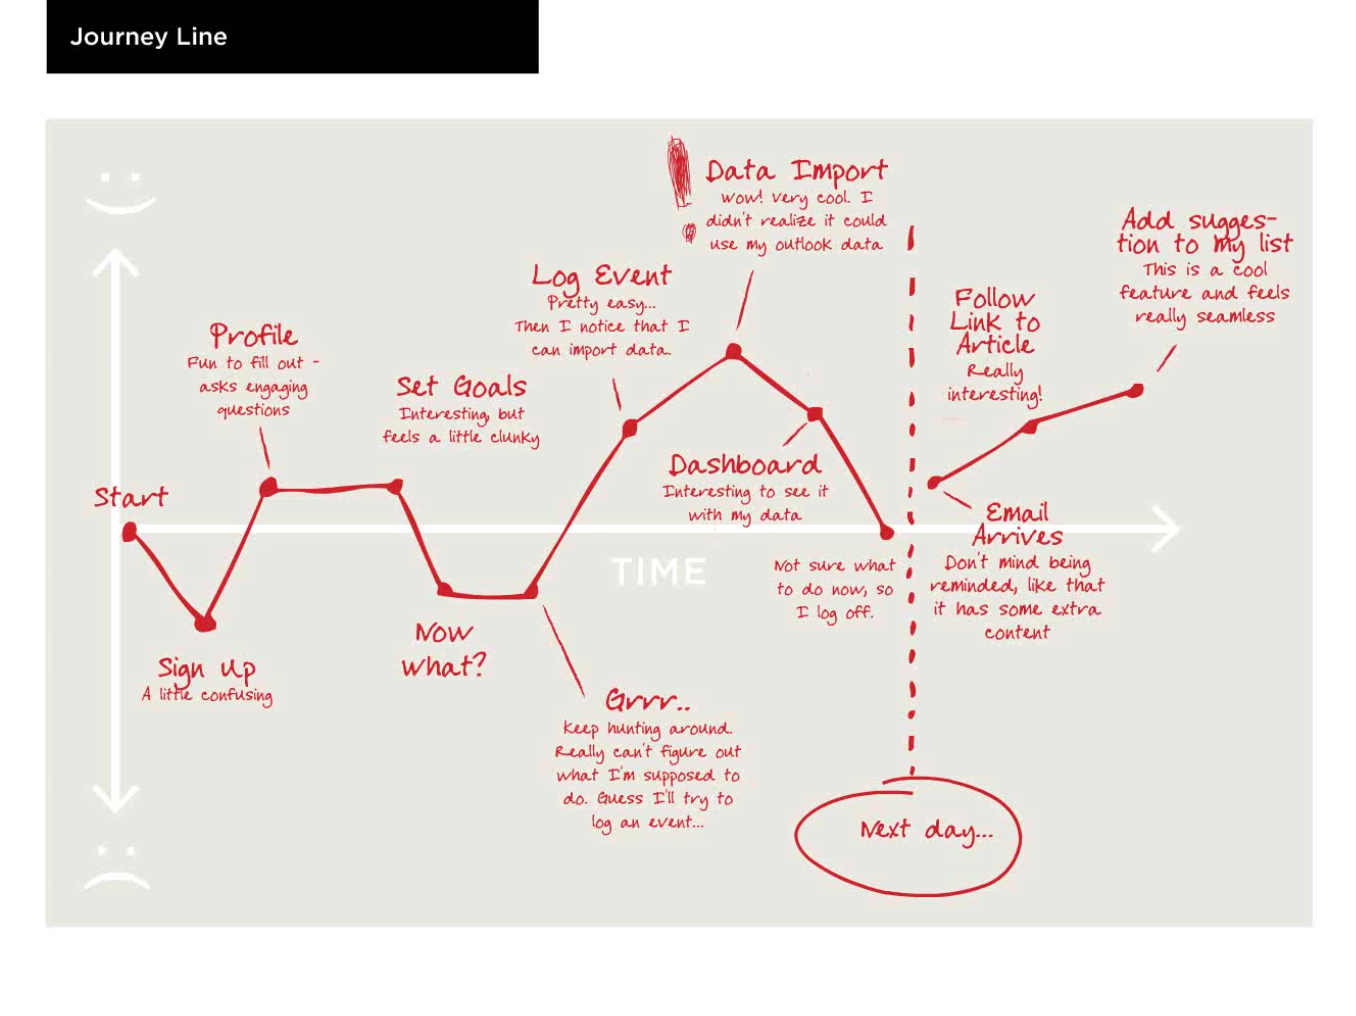 Journey Line
Start
Sign Up
A little confusing
Profile
Fun to fill out -
asks engaging
questions
Set Goals
Interesting, but
feels a little clunky
Now
what?
Grrr..
Keep hunting around.
Really can't figure out
what I'm supposed to
do. Guess I'll try to
log an event...
Log Event
Pretty easy...
Then I notice that I
can import data.
Data Import
Wow! Very cool. I
didn't realize it could
use my outlook data
Dashboard
Interesting to see it
with my data
TIME
Not sure what
to do now, so
I log off.
Next day...
Email
Arrives
Don't mind being
reminded, like that
it has some extra
content
Follow
Link to
Article
Really
interesting!
Add sugges-
tion to my list
This is a cool
feature and feels
really seamless